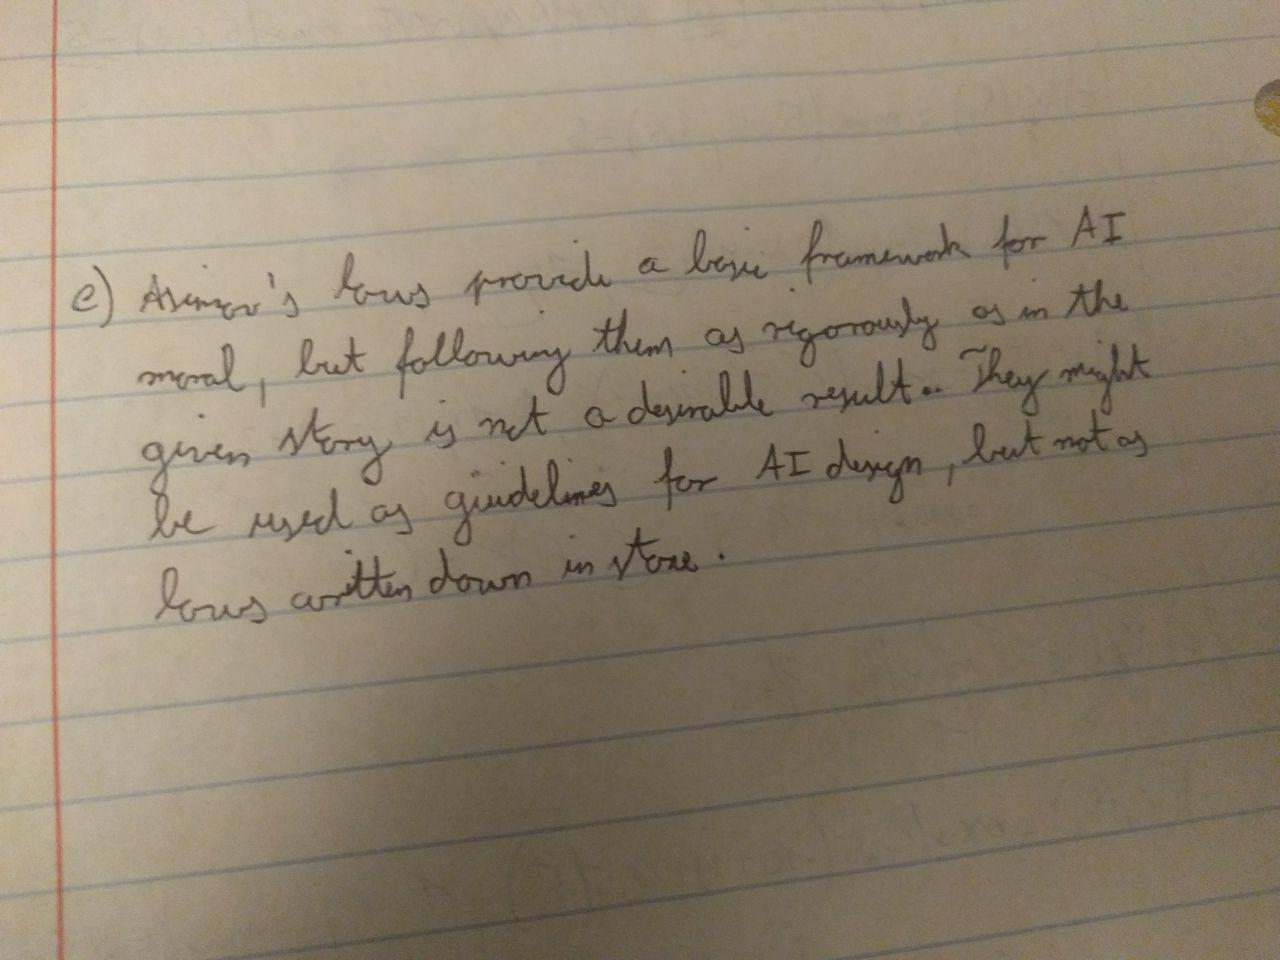 e) Asimov's laws provide a basic framework for AI
moral, but following them as rigorously as in the
given story is not a desirable result.. They might
be used as guidelines for AI design, but not as
laws written down in stone.